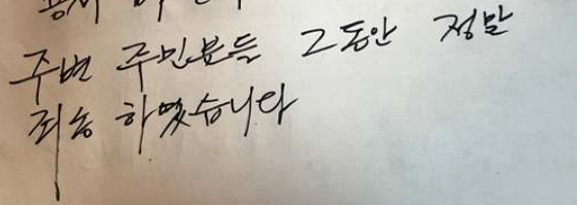 주변 주민분들 그동안 정말
죄송 하였습니다